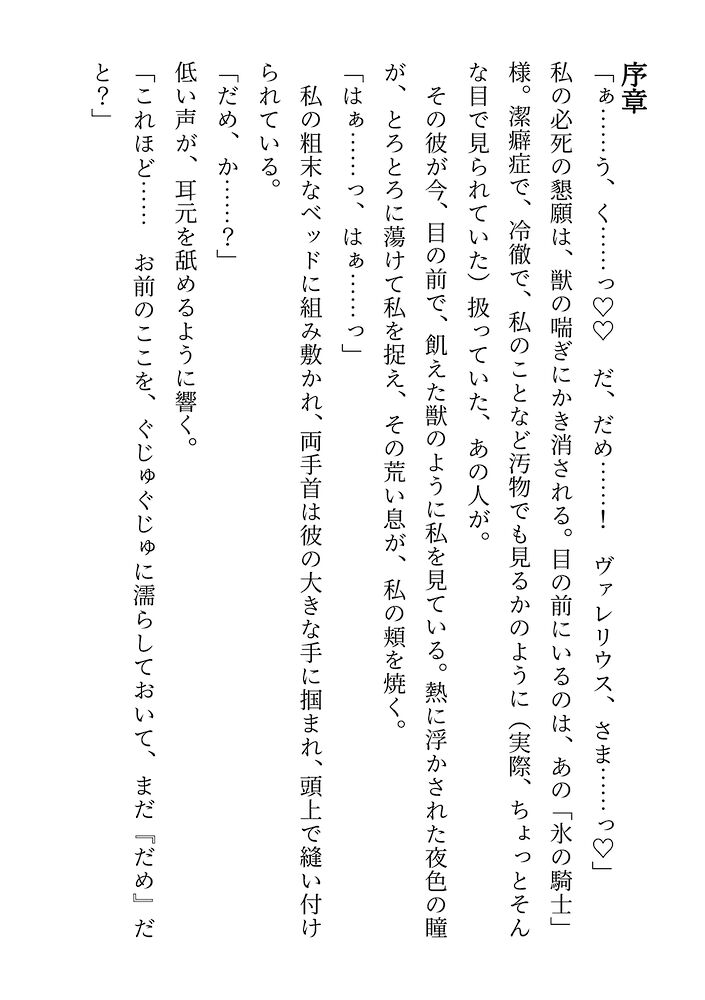 序章
「ぁ……う、く……っ♡♡　だ、だめ……！　ヴァレリウス、さま……っ♡」
私の必死の懇願は、獣の喘ぎにかき消される。目の前にいるのは、あの「氷の騎士」
様。潔癖症で、冷徹で、私のことなど汚物でも見るかのように（実際、ちょっとそん
な目で見られていた）扱っていた、あの人が。
　その彼が今、目の前で、飢えた獣のように私を見ている。熱に浮かされた夜色の瞳
が、とろとろに蕩けて私を捉え、その荒い息が、私の頬を焼く。
「はぁ……っ、はぁ……っ」
　私の粗末なベッドに組み敷かれ、両手首は彼の大きな手に掴まれ、頭上で縫い付け
られている。
「だめ、か……？」
低い声が、耳元を舐めるように響く。
「これほど……　お前のここを、ぐじゅぐじゅに濡らしておいて、まだ『だめ』だ
と？」